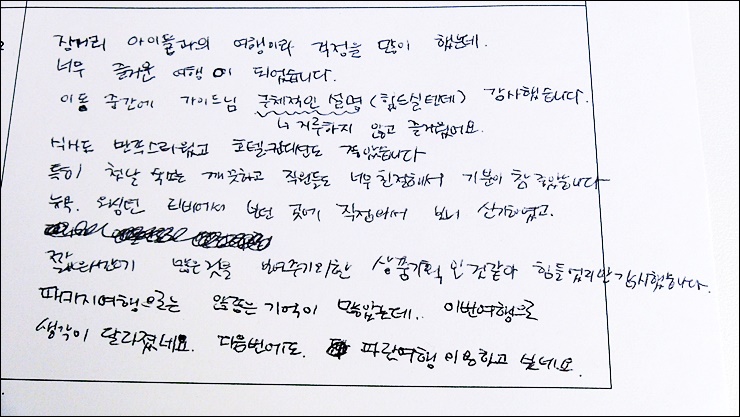 장거리 아이들과의 여행이라 걱정을 많이 했는데.
너무 즐거운 여행이 되었습니다.
이동 중간에 가이드님 구체적인 설명 (힘드실텐데) 감사했습니다.
↳ 지루하지 않고 즐거웠어요.
식사도 만족스러웠고 호텔컨디션도 좋았습니다
특히 첫날 숙소는 깨끗하고 직원들도 너무 친절해서 기분이 참 좋았습니다
뉴욕. 워싱턴 티비에서 보던 곳에 직접와서 보니 신기하였고.
짧은시간에 많은것을 보여주기위한 상품기획인것같아 힘들었지만 감사했습니다.
패키지여행으로는 안좋은기억이 많았는데.. 이번여행으로
생각이 달라졌네요. 다음번에도. 파란여행 이용하고 싶네요.